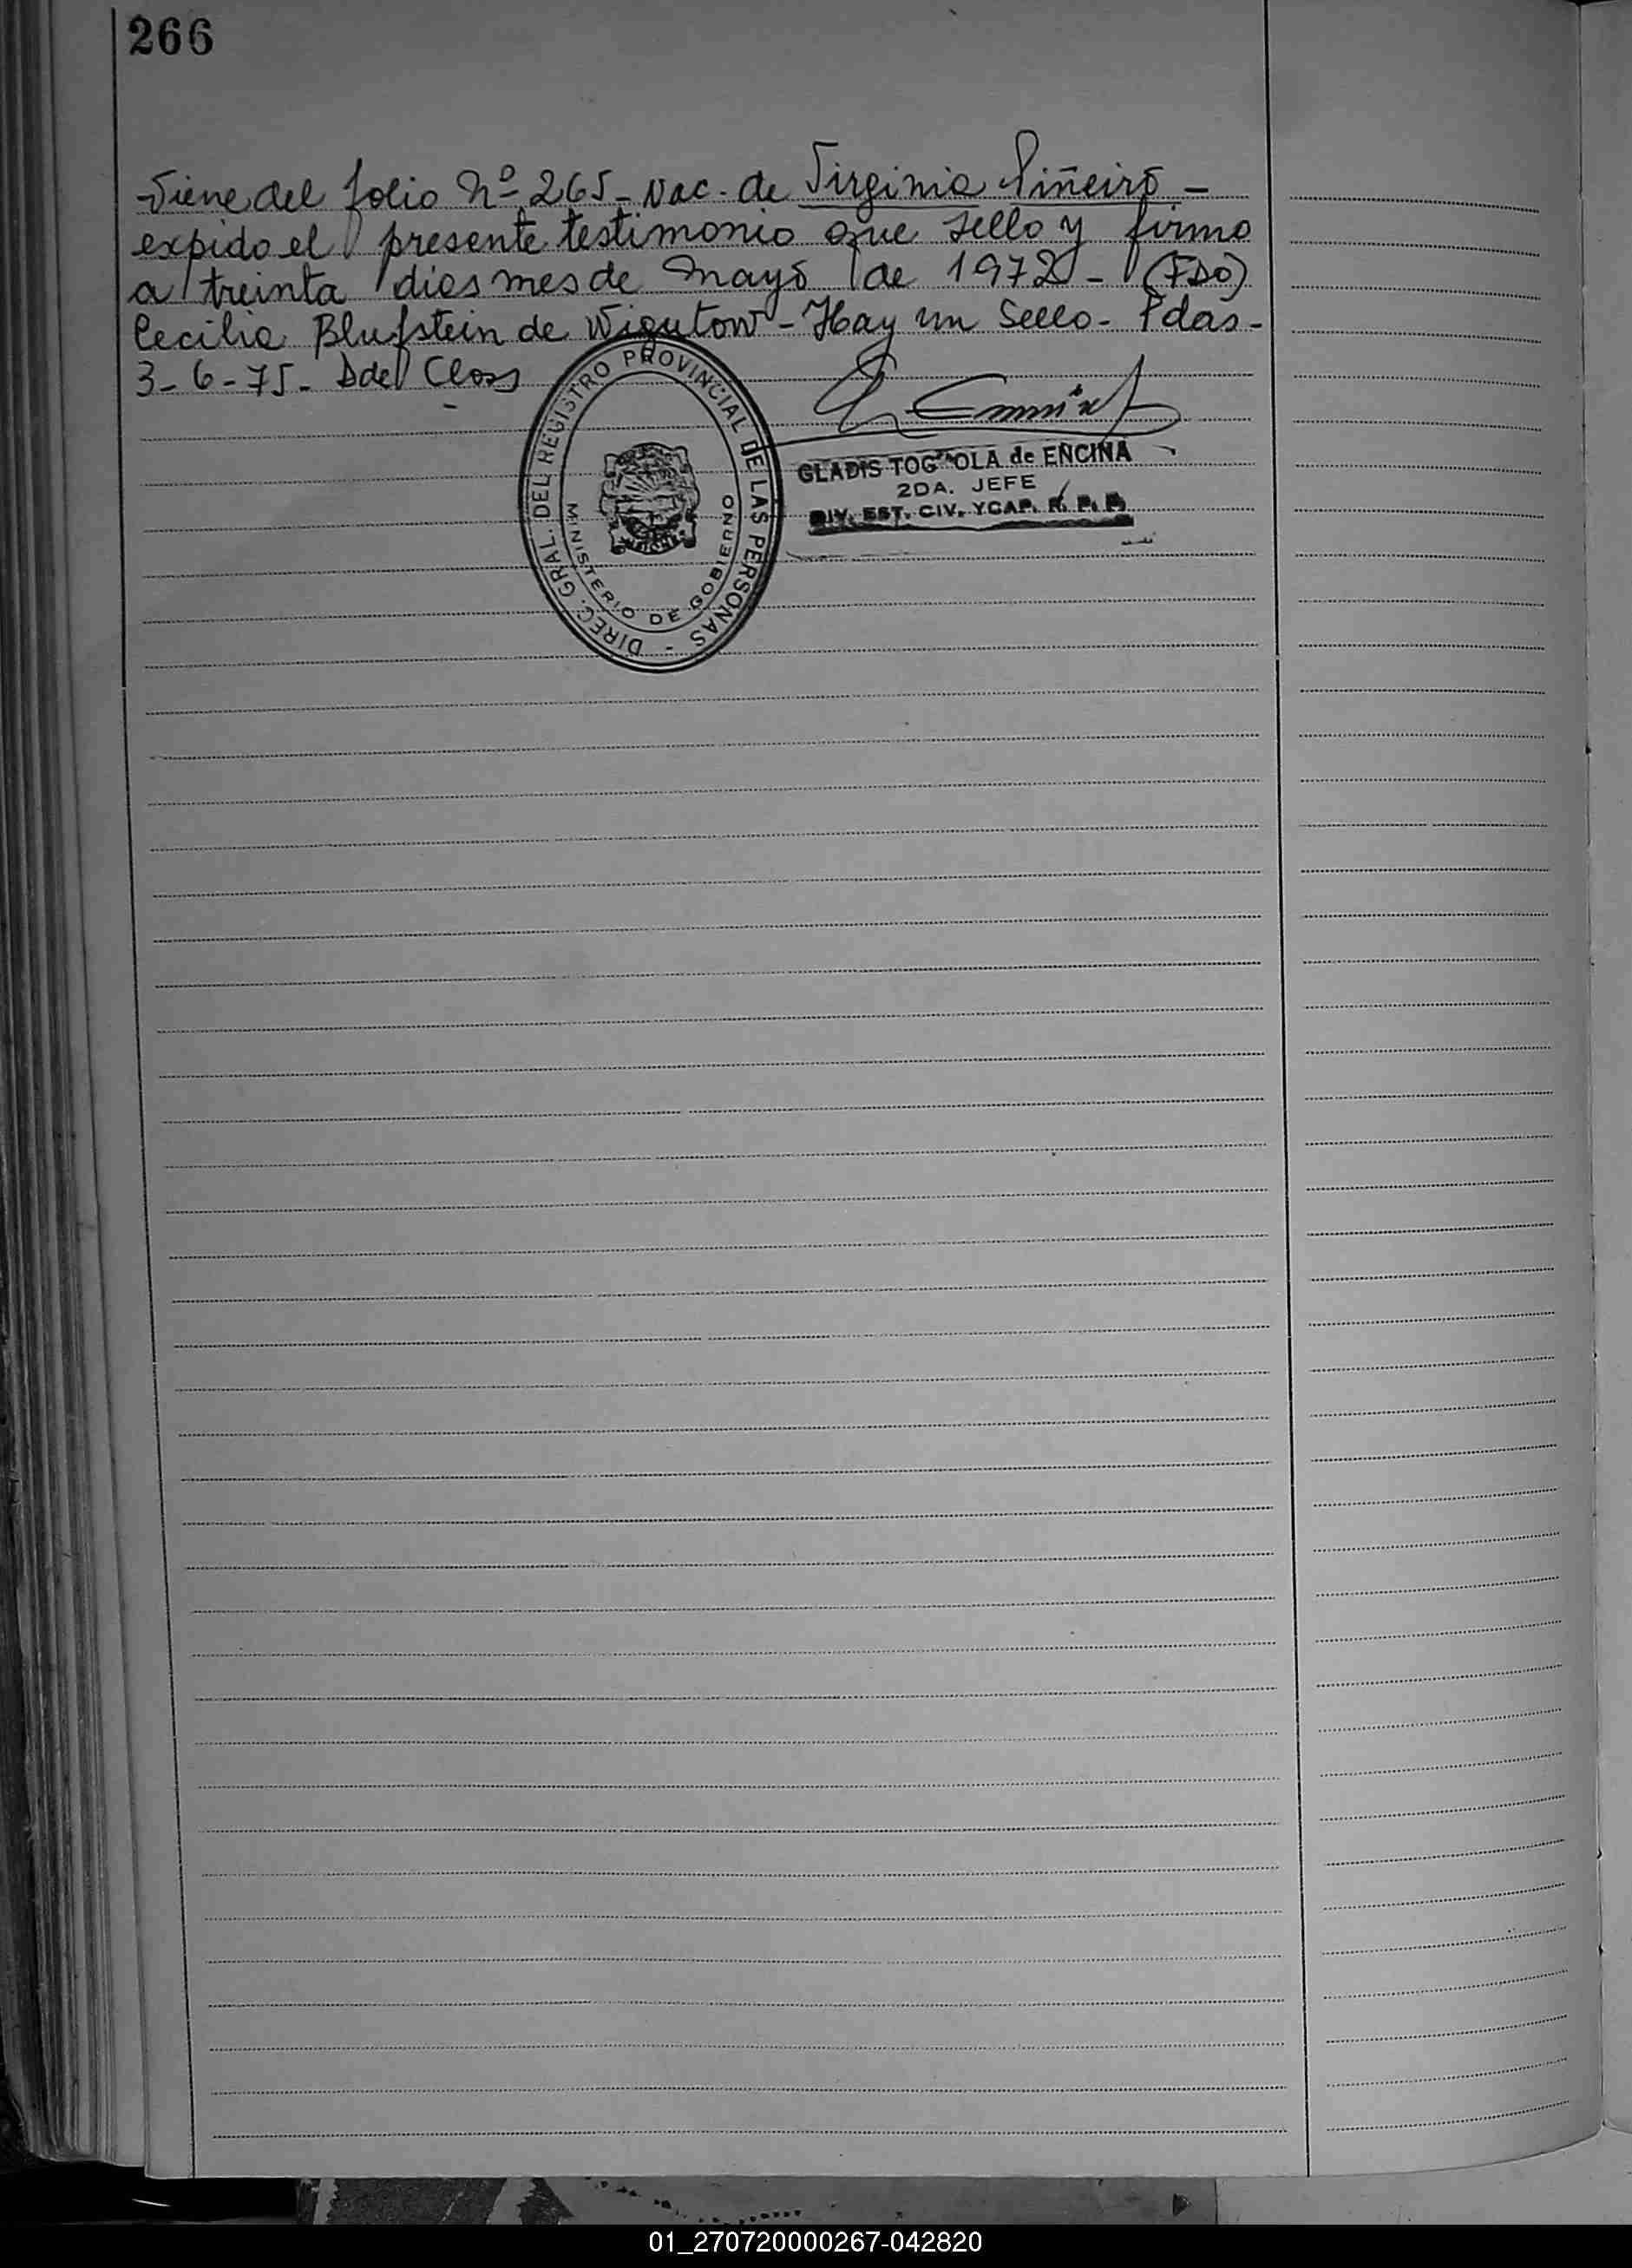 266
Viene del folio Nº 265 - Nac. de Virginia Piñeiro -
expido el presente testimonio que sello y firmo
a treinta dias mes de Mayo de 1972 - (FDO)
Cecilia Blufstein de Wigutow - Hay un Sello - Pdas -
3-6-75 -
DIREC. GRAL. DEL REGISTRO PROVINCIAL DE LAS PERSONAS -
MINISTERIO DE GOBIERNO
GLADIS TOGNOLA de ENCINA
2DA. JEFE
DIV. EST. CIV. Y CAP. R. P. P.
01_270720000267-042820